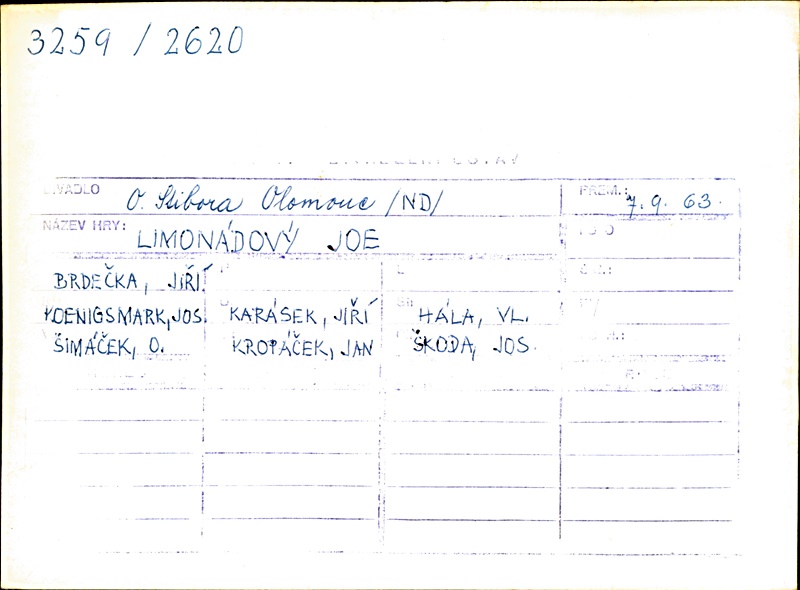 3259 / 2620
DIVADLO O. Stibora Olomouc /ND/ PREM.: 7.9.63.
NÁZEV HRY: LIMONÁDOVÝ JOE
BRDEČKA, JIŘÍ
KOENIGSMARK, JOS. KARÁSEK, JIŘÍ HÁLA, VL.
ŠIMÁČEK, O. KROPÁČEK, JAN ŠKODA, JOS.